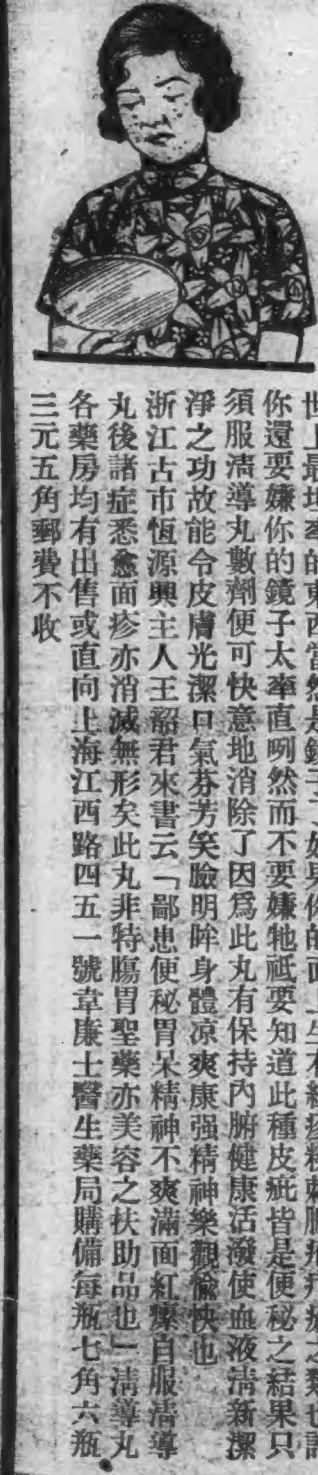 世上最坦率的東西當然是鏡子了
你還要嫌你的鏡子太率直咧然而不要嫌牠祇要知道此種皮疵皆是便秘之結果只
須服淸導丸數劑便可快意地消除了因爲此丸有保持內腑健康活潑使血液淸新潔
淨之功故能令皮膚光潔口氣芬芳笑臉明眸身體凉爽康强精神樂觀愉快也
浙江古市恆源興主人王韶君來書云「鄙患便秘胃呆精神不爽滿面紅瘰自服淸導
丸後諸症悉愈面疹亦消滅無形矣此丸非特腸胃聖藥亦美容之扶助品也」淸導丸
各藥房均有出售或直向上海江西路四五一號韋廉士醫生藥局購備每瓶七角六瓶
三元五角郵費不收